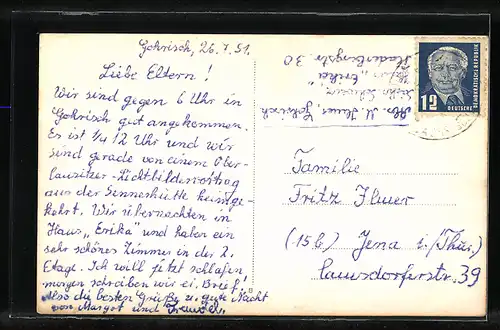 Gohrisch, 26.7.51.
Liebe Eltern!
Wir sind gegen 6 Uhr in
Gohrisch gut angekommen.
Es ist 1/4 12 Uhr und wir
sind gerade von einem Ober-
lausitzer-Lichtbildervortrag
aus der Sennerhütte heimge-
kehrt. Wir übernachten in
Haus „Erika" und haben ein
sehr schönes Zimmer in der 2.
Etage. Ich will jetzt schlafen,
morgen schreiben wir ei. Brief.
Also die besten Grüße u. gute Nacht
von Margot und
Gohrisch
Haus „Erika"
30
DEUTSCHE DEMOKRATISCHE REPUBLIK
12
Familie
Fritz
(15b) Jena i./Thür.
39